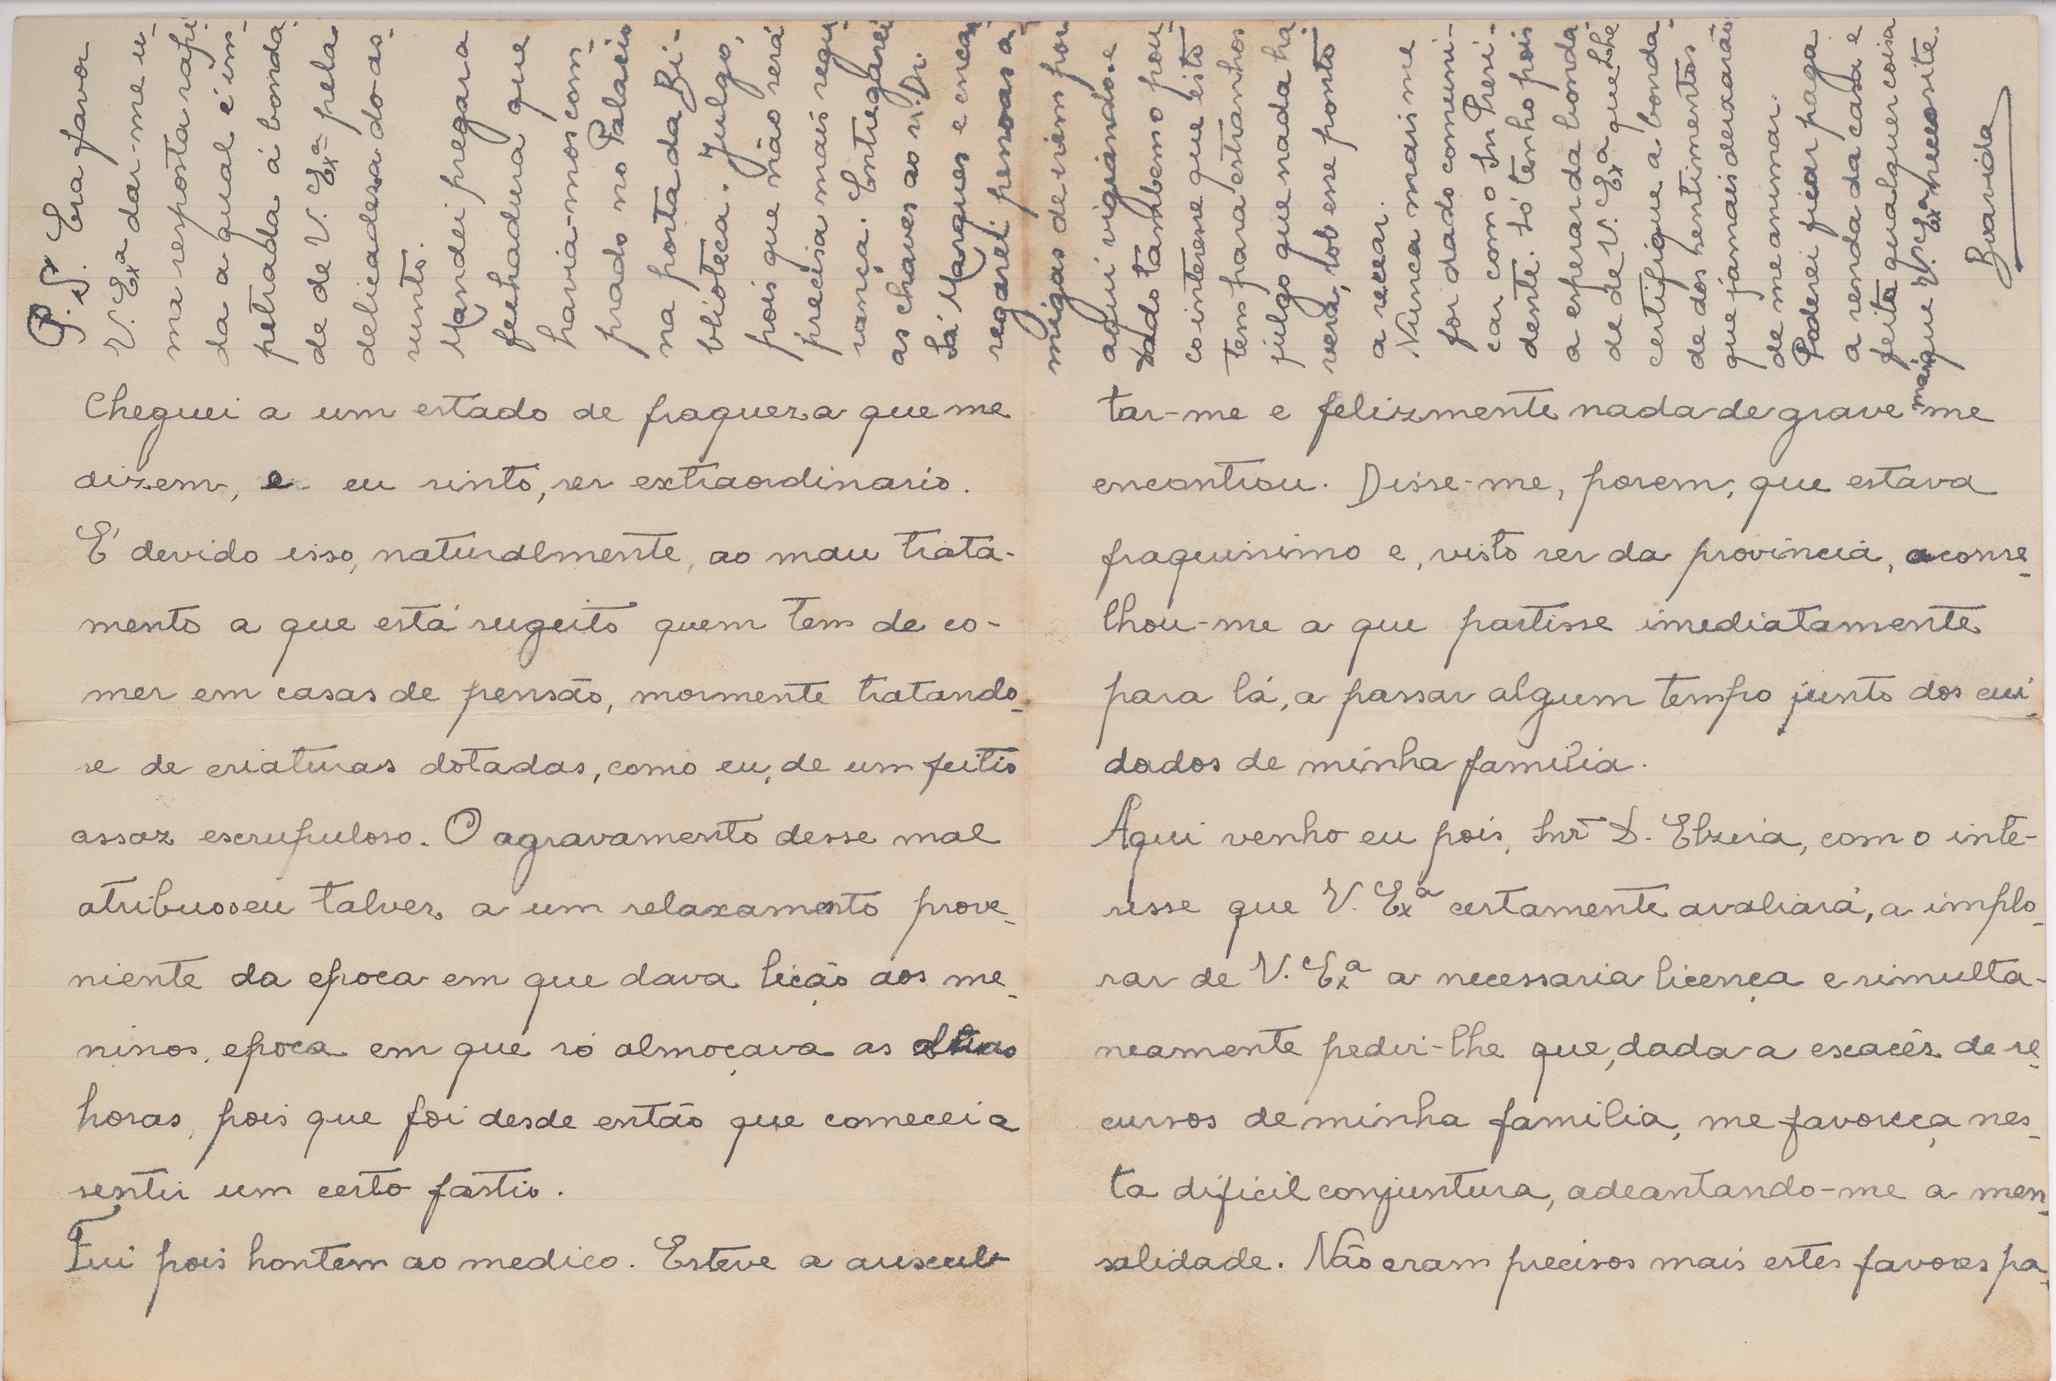 Cheguei a um estado de fraqueza que me
dizem, e eu sinto, ser extraordinario.
É devido isso, naturalmente, ao mau trata-
mento a que está sugeito quem tem de co-
mer em casas de pensão, mormente tratando-
se de criaturas dotadas, como eu, de um feitio
assaz escrupuloso. O agravamento desse mal
atribuo-o eu talvez a um relaxamento prove-
niente da epoca em que dava lição aos me-
ninos, epoca em que só almoçava as
horas, pois que foi desde então que comecei a
sentir um certo fastio.
Fui pois hontem ao medico. Esteve a auscul-
tar-me e felizmente nada de grave me
encontrou. Disse-me, porem, que estava
fraquissimo e, visto ser da provincia, aconse-
lhou-me a que partisse imediatamente
para lá, a passar algum tempo junto dos cui-
dados de minha familia.
Aqui venho eu pois, Snrª D. Elzira, com o inte-
resse que V. Exª certamente avaliará, a implo-
rar de V. Exª a necessaria licença e simulta-
neamente pedir-lhe que, dada a escacês de re-
cursos de minha familia, me favoreça nes-
ta dificil conjuntura, adeantando-me a men-
salidade. Não eram precisos mais estes favores pa-
P.S. Era favor
V. Exª dar-me u-
ma resposta rapi-
da a qual é im-
petrada á bonda-
de de V. Exª pela
delicadesa do as-
sunto.
Mandei pregar a
fechadura que
havia-mos com-
prado no Palacio
na porta da Bi-
blioteca. Julgo,
pois que não será
precisa mais segu-
rança. Entregarei
as chaves ao sr. Dr.
Sá Marques e encar-
regarei pessoas a-
migas de irem por
aqui vigiando e
dado tambem o pou-
co interesse que isto
tem para estranhos
julgo que nada ha-
verá, sob esse ponto
a recear.
Nunca mais me
foi dado comuni-
car com o Snr Presi-
dente. Só tenho pois
a esperar da bonda-
de de V. Exª que lhe
certifique a bonda-
de dos sentimentos
que jamais deixarão
de me animar.
Poderei ficar paga
a renda da casa e
feita qualquer coisa
mais que V. Exª necessite.
Boavida